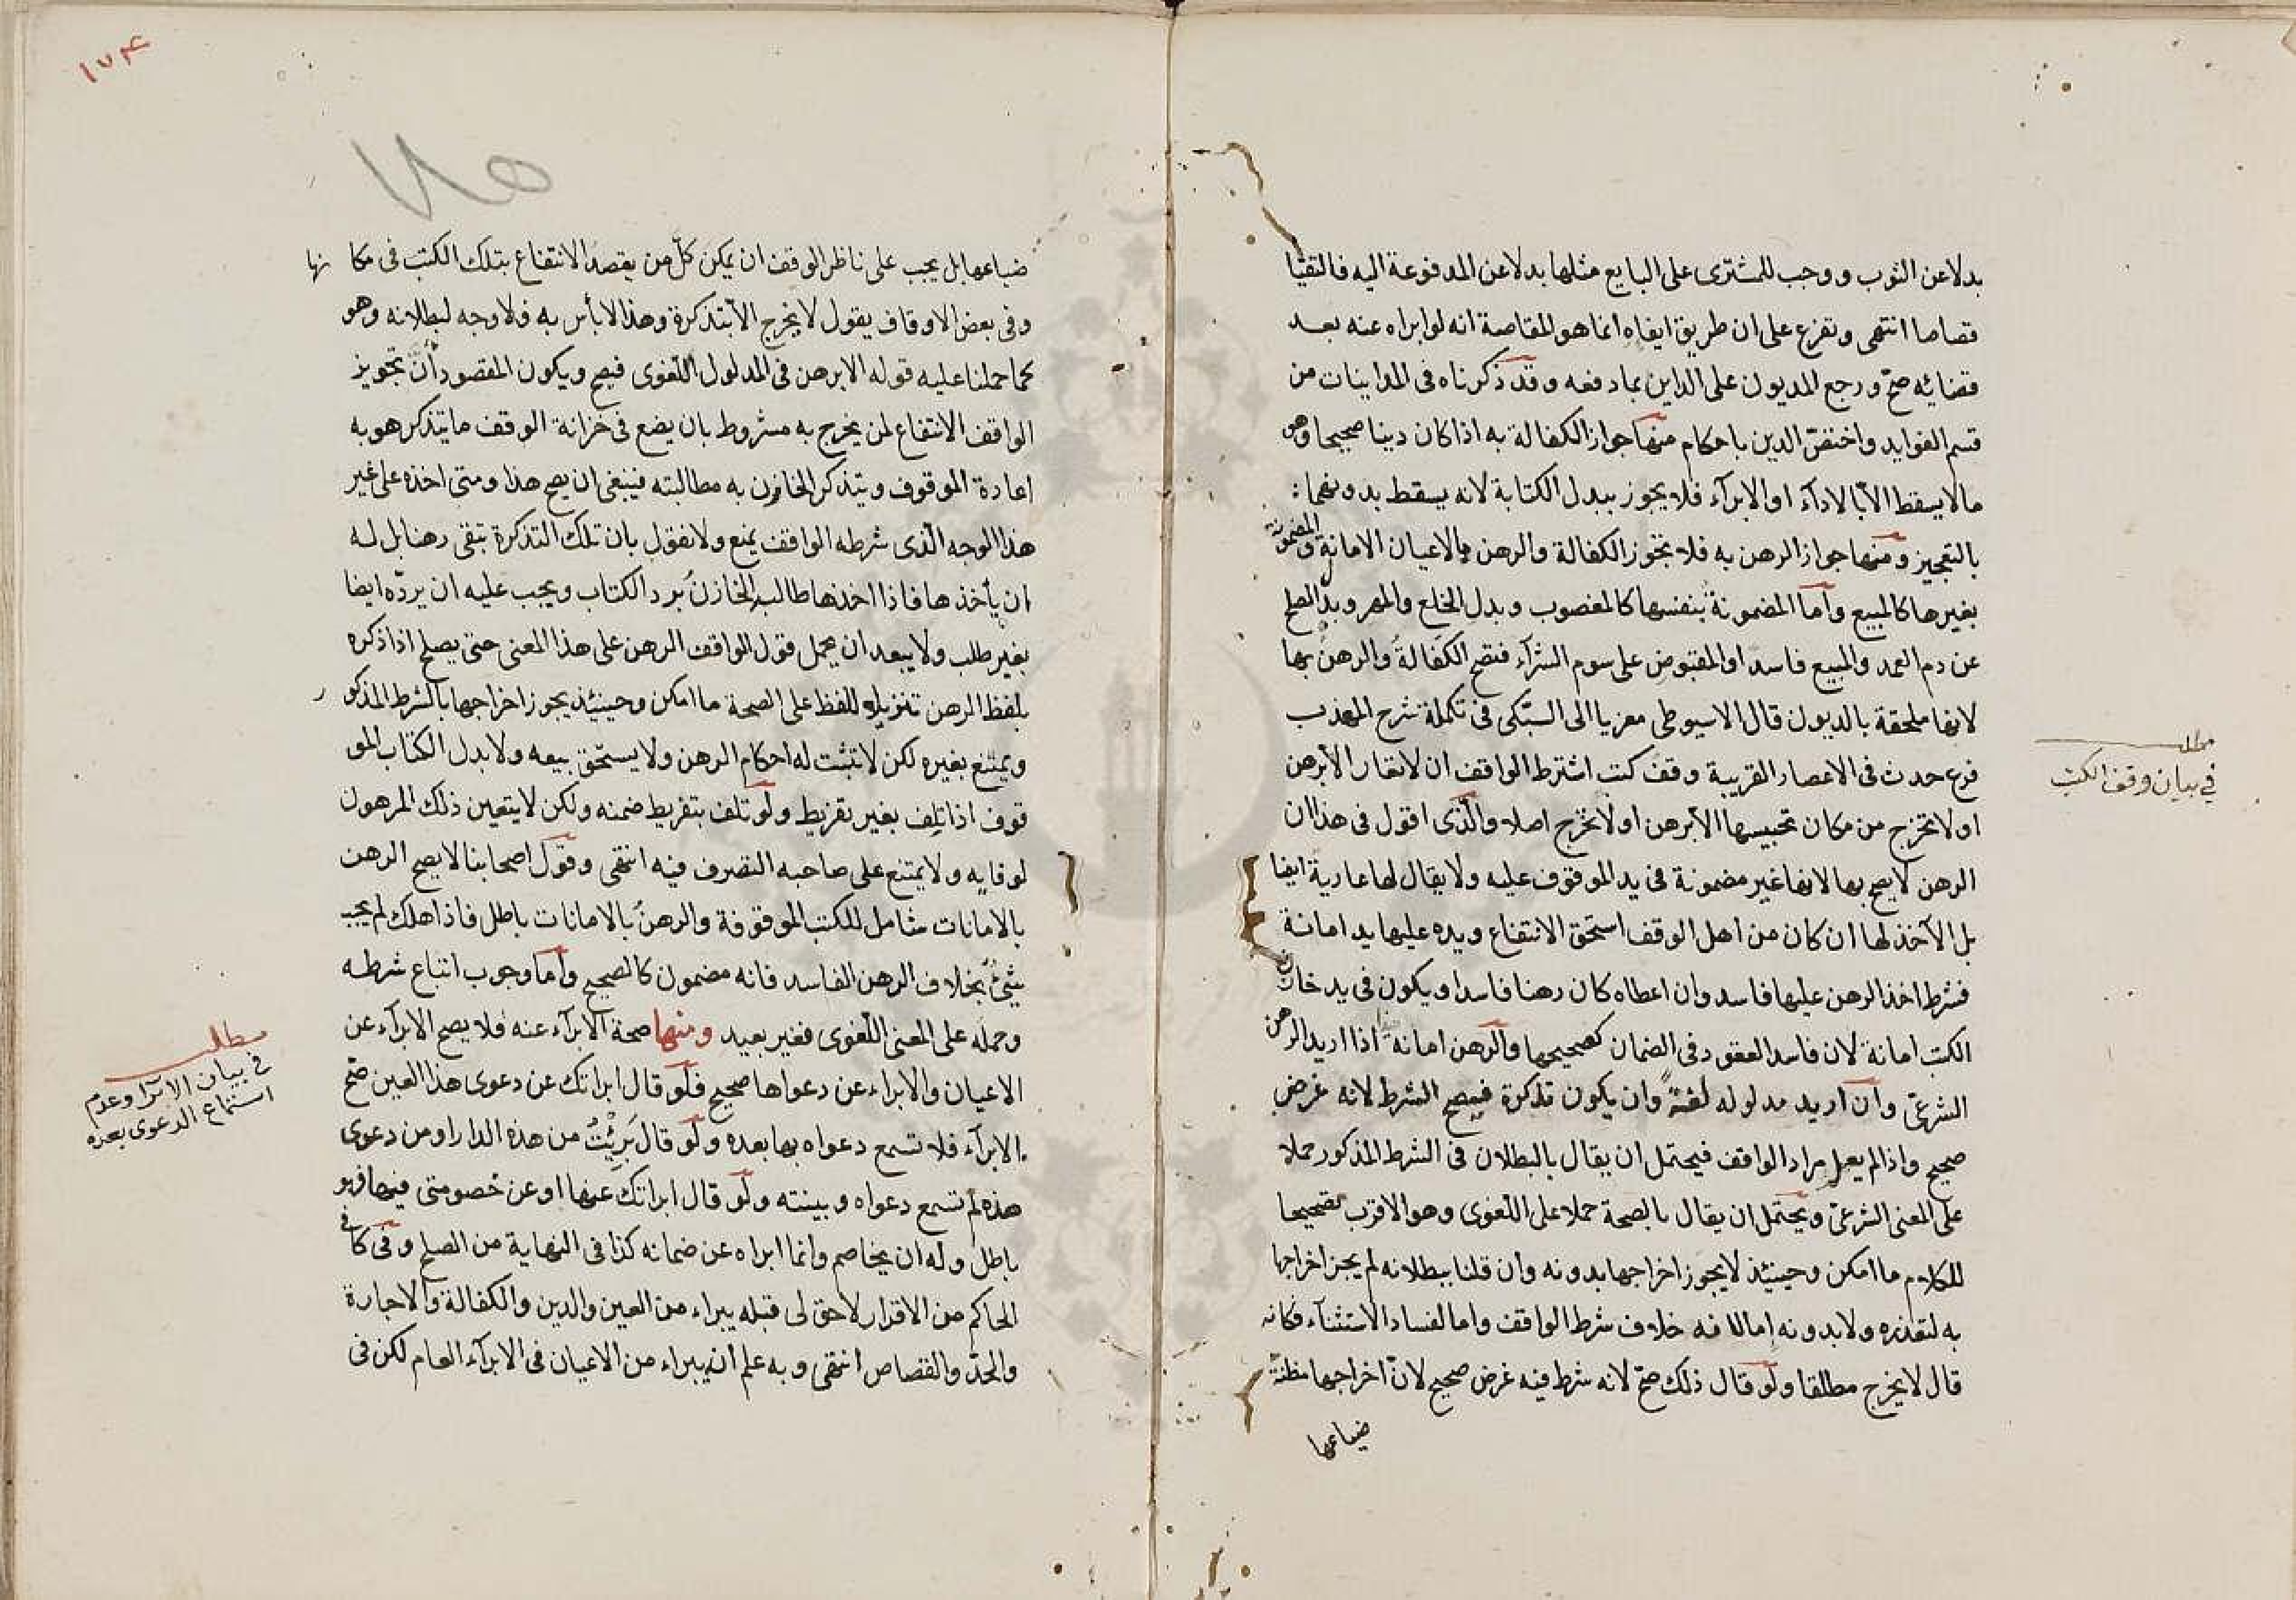 بدلا عن الثوب ووجب للمشترى على البايع مثلها بدلا عن المدفوعة اليه فالتقيا
قصاصا انتهى وتفرع على ان طريق ايفاه انما هو المقاصة انه لو ابراه عنه بعد
قضائه صح ورجع المديون على الداين بما دفعه وقد ذكرناه فى المداينات من
قسم الفوايد واختص الدين باحكام منها جواز الكفالة به اذا كان دينا صحيحا وهو
مالا يسقط الا بالادآء او الابرآء فلا يجوز ببدل الكتابة لانه يسقط بدونهما:
بالتعجيز ومنها جواز الرهن به فلا تجوز الكفالة والرهن بالاعيان الامانة والمضمونة
بغيرها كالمبيع واما المضمونة بنفسها كالمغصوب وبدل الخلع والمهر وبدل الصلح
عن دم العمد والمبيع فاسدا والمقبوض على سوم الشرآء فتصح الكفالة والرهن بها
لانها ملحقة بالديون قال الاسيوطى معزيا الى السبكى فى تكملة شرح المهذب
فرع حدث فى الاعصار القريبة وقف كتب اشترط الواقف ان لا تعار الا برهن
او لا تخرج من مكان تحبيسها الا برهن او لا تخرج اصلا والذى اقول فى هذا ان
الرهن لا يصح بها لانها غير مضمونة فى يد الموقوف عليه ولا يقال لها عارية ايضا
بل الآخذ لها ان كان من اهل الوقف استحق الانتفاع ويده عليها يد امانة
فشرط اخذ الرهن عليها فاسد وان اعطاه كان رهنا فاسدا ويكون فى يد خازن
الكتب امانة لان فاسد العقود فى الضمان كصحيحها والرهن امانة اذا اريد الرهن
الشرعى وان اريد مدلوله لغة وان يكون تذكرة فيصح الشرط لانه غرض
صحيح واذا لم يعلم مراد الواقف فيحتمل ان يقال بالبطلان فى الشرط المذكور حملا
على المعنى الشرعى ويحتمل ان يقال بالصحة حملا على اللغوى وهو الاقرب تصحيحا
للكلام ما امكن وحينئذ لا يجوز اخراجها بدونه وان قلنا ببطلانه لم يجز اخراجها
به لتعذره ولا بدونه اما لانه خلاف شرط الواقف واما لفساد الاستثنآء فكانه
قال لا يخرج مطلقا ولو قال ذلك صح لانه شرط فيه غرض صحيح لان اخراجها مظنة
ضياعها
مطلب
فى بيان وقف الكتب
١٧٤
ضياعها بل يجب على ناظر الوقف ان يمكن كل من يقصد الانتفاع بتلك الكتب فى مكانها
وفى بعض الاوقاف يقول لا يخرج الا بتذكرة وهذا لا بأس به ولا وجه لبطلانه وهو
كما حملنا عليه قوله الا برهن فى المدلول اللغوى فيصح ويكون المقصود أن تجويز
الواقف الانتفاع لمن يخرج به مشروط بان يضع فى خزانة الوقف ما يتذكر هو به
اعادة الموقوف ويتذكر الخازن به مطالبته فينبغى ان يصح هذا ومتى اخذه على غير
هذا الوجه الذى شرطه الواقف يمنع ولا نقول بان تلك التذكرة تبقى رهنا بل له
ان يأخذها فاذا اخذها طالبه الخازن برد الكتاب ويجب عليه ان يرده ايضا
بغير طلب ولا يبعد ان يحمل قول الواقف الرهن على هذا المعنى حتى يصلح اذا ذكره
بلفظ الرهن تنزيلا للفظ على الصحة ما امكن وحينئذ يجوز اخراجها بالشرط المذكور
ويمتنع بغيره لكن لا تثبت له احكام الرهن ولا يستحق بيعه ولا بدل الكتاب المو
قوف اذا تلف بغير تفريط ولو تلف بتفريط ضمنه ولكن لا يتعين ذلك المرهون
لوفايه ولا يمتنع على صاحبه التصرف فيه انتهى وقول اصحابنا لا يصح الرهن
بالامانات شامل للكتب الموقوفة والرهن بالامانات باطل فاذا اهلك لم يجب
شئ بخلاف الرهن الفاسد فانه مضمون كالصحيح واما وجوب اتباع شرطه
وحمله على المعنى اللغوى فغير بعيد ومنها صحة الابرآء عنه فلا يصح الابرآء عن
الاعيان والابراء عن دعواها صحيح فلو قال ابراتك عن دعوى هذا العين صح
الابرآء فلا تسمع دعواه بها بعده ولو قال برئت من هذه الدار او من دعوى
هذه لم تسمع دعواه وبينته ولو قال ابراتك عنها او عن خصومتى فيها فهو
باطل وله ان يخاصم وانما ابراه عن ضمانه كذا فى النهاية من الصلح وفى كافى
الحاكم من الاقرار لا حق لى قبله يبراء من العين والدين والكفالة والاجارة
والحد والقصاص انتهى وبه علم انه يبراء من الاعيان فى الابرآء العام لكن فى
مطلب
فى بيان الابرآء وعدم
استماع الدعوى بعده